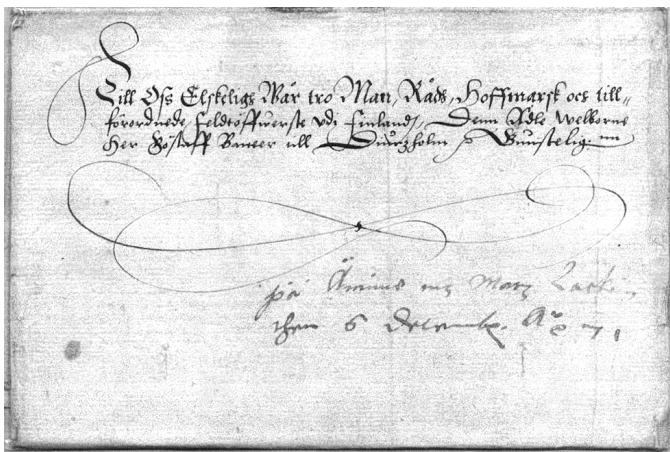 Till Oss Elskeligs Wår tro Man, Råds, Hoffmarsk och till„
förordnede Feldtöffuerste vdi Finland, Denn Ädle Welborne
Her Göstaff Baneer till Diursholm Gunstelig:
på mz Mary
then 6 Decemb.